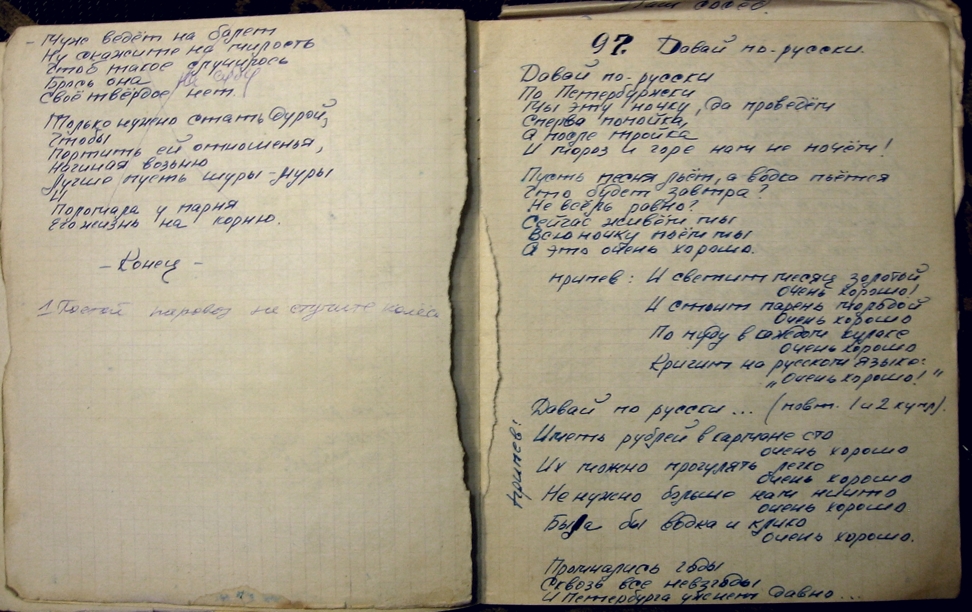 - Чуже ведёт на балет
Ну скажите на милость
Чтоб такое случилось
Брось она не сразу
Своё твёрдое нет.
Только нужно стать дурой,
Чтобы
Портить ей отношенья,
Начиная возьню
Лучше пусть шуры-муры
И
Поломала у парня
Его жизнь на корню.
- Конец -
1 Постой паровоз не стучите колёса
97. Давай по-русски.
Давай по-русски
По Петербуржски
Мы эту ночку, да проведём
Сперва попойка,
А после тройка
И мороз и горе нам не почём!
Пусть песня льёт, а водка пьётся
Что будет завтра?
Не всёль равно?
Сейчас живём мы
Всю ночку поём мы
А это очень хорошо.
припев: И светит месяц золотой
Очень хорошо!
И стоит парень молодой
Очень хорошо
По пуду в каждом кулаке
Очень хорошо
Кричит на русском языке:
"Очень хорошо!"
Давай по русски ... (повт. 1 и 2 купл).
припев:
Иметь рублей в кармане сто
очень хорошо
Их можно прогулять легко
очень хорошо
Не нужно больше нам ничто
очень хорошо
Была бы водка и клико
очень хорошо.
Промчались годы
Сквозь все невзгоды
И Петербурга уж нет давно...